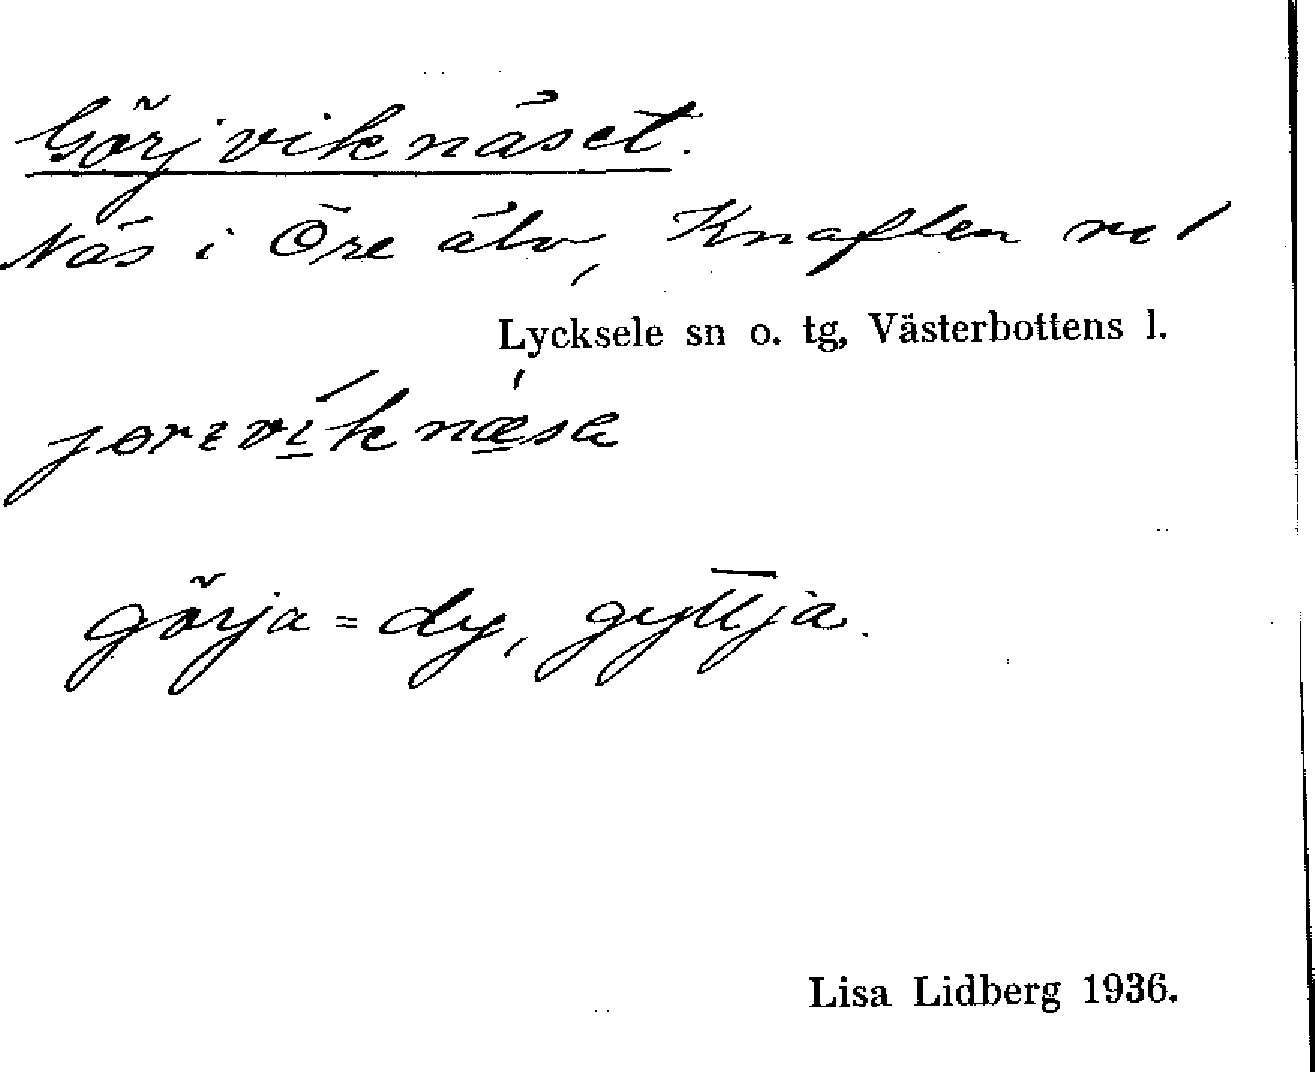 Görjviknäset.
Näs i Öre älv, Knaften nr 1
Lycksele sn o. tg, Västerbottens l.
görja = dy, gyttja.
Lisa Lidberg 1936.